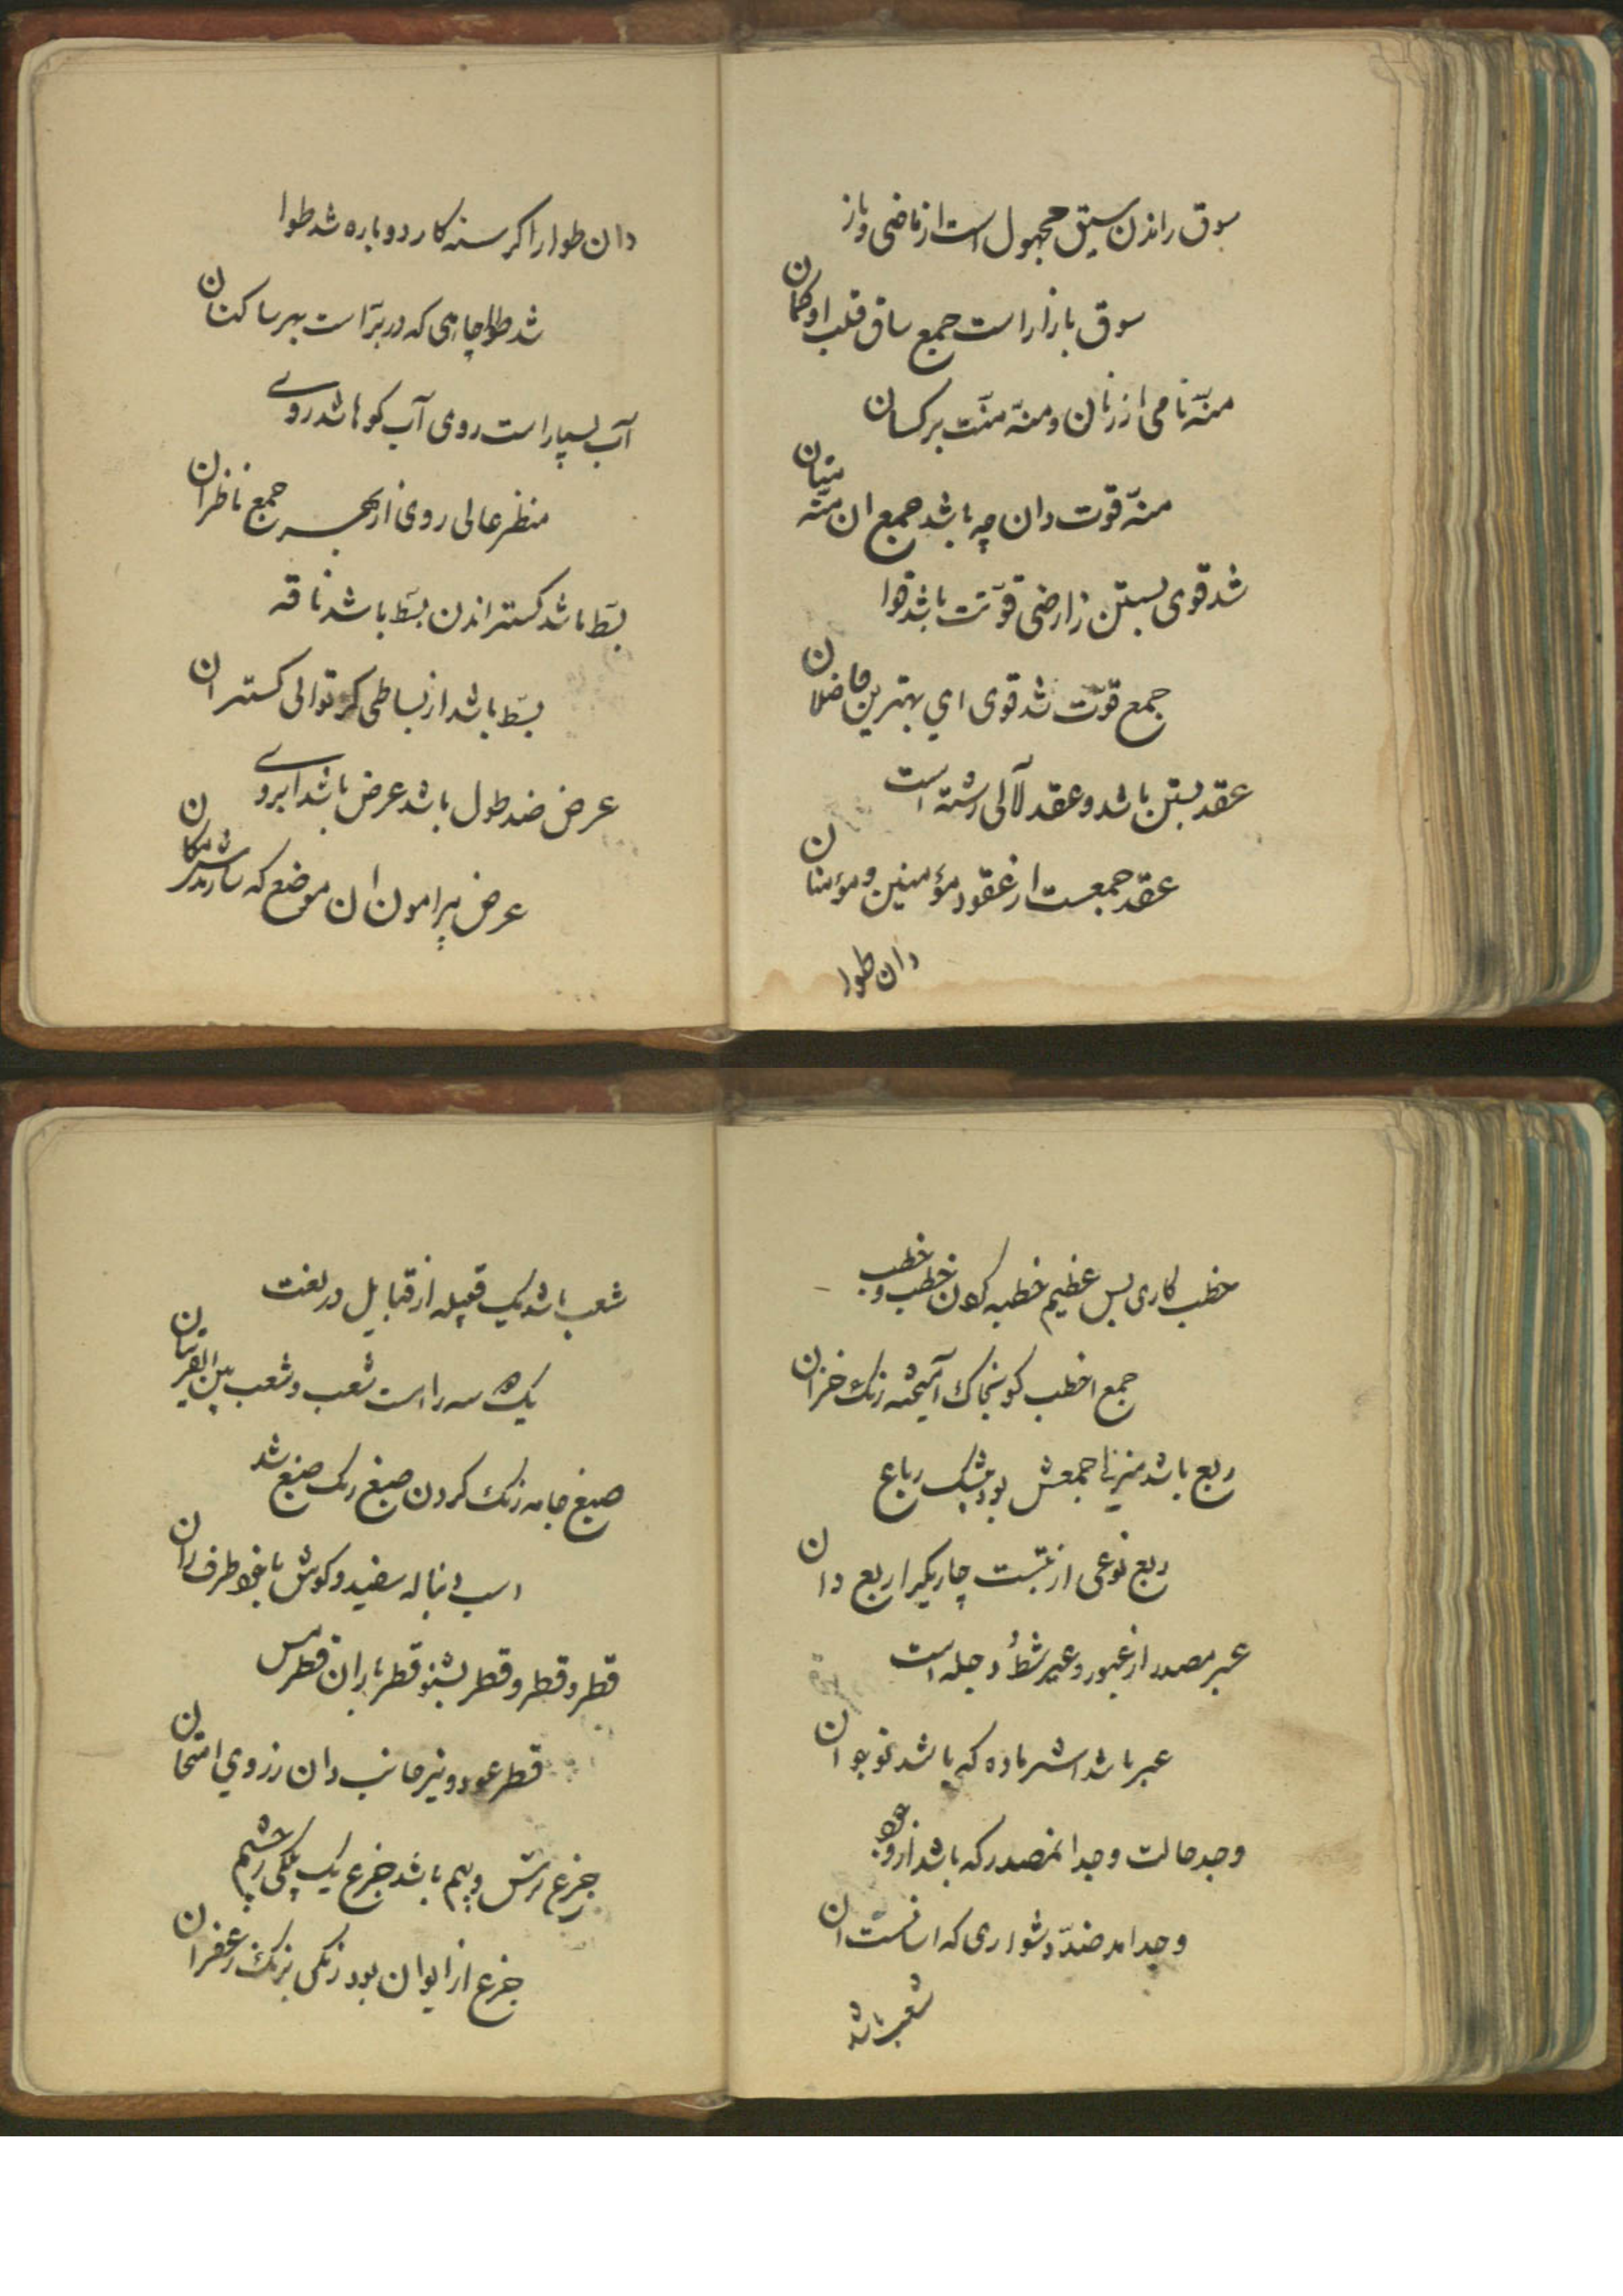 سوق راندن سیق مجهول است از ماضی و باز
سوق بازار است جمع ساق قلب او کمان
منّه نامی از زنان و منّه منّت بر کسان
منّه قوت دان چه باشد جمع ان منّه
شد قوی بستن ز ارضی قوّتت باشد قوا
جمع قوّت شد قوی ای بهترین فاضلان
عقد بستن باشد و عقد لآلی رشته است
عقد جمعست از عقود مؤمنین و مؤمنان
دان طوا
دان طوا را کرسنه کار دوباره شد طوا
شد طوا چاهی که در برّ است بهر ساکنان
آب بسیار است روی آب کوها شد روی
منظر عالی روی از بهر جمع ناظران
بسّط باشد کستراندن بسّط باشد ناقه
بسّط باشد از بساطی کر توالی کستران
عرض ضد طول باشد عرض باشد ابروی
عرض پیرامون ان موضع که
خطب کاری بس عظیم خطبه کردن خطب و خطب
جمع اخطب کو بخاک آمیخته رنک خزان
ربع باشد منزل جمعش بود بیشک رباع
ربع نوعی از تبست چاریکیرا ربع دان
عبر مصدر از عبور و عبر شطّ دجله است
عبر باشد اشتر ماده که باشد نوجوان
وجد حالت وجد انمصدر که باشد از وجود
وجد امد ضدّ دشواری که اسانست ان
شعب باشد
شعب باشد یک قبیله از قبایل در لغت
یک سه را است شعب و شعب بین
صبغ جامه رنک کردن صبغ رنک صبغ شد
اسب دنباله سفید و کوش با طرف ران
قطر و قطر و قطر بشنو قطر باران قطر مس
قطر عود و نیز جانب دان ز روی امتحان
جزع ترس و بیم باشد جزع یک پلکی ز چشم
جزع از ایوان بود رنکی برنک زعفران